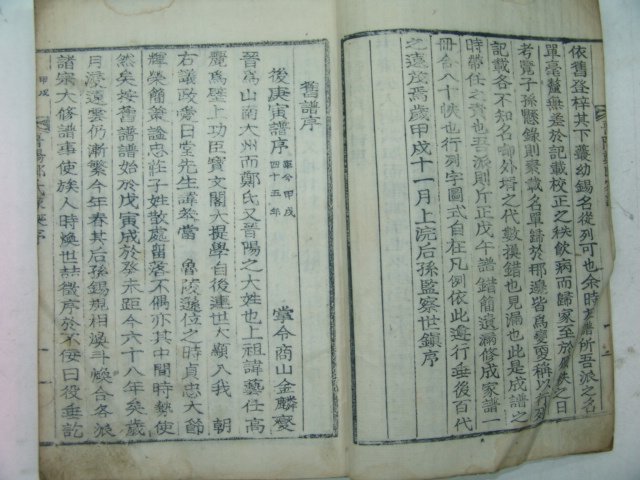 依舊登梓其下叢幼錫名從列可也余時在譜所吾派之名
單毫釐無差於記載校正之秩飲病而歸家至於頒帙之日
考覽子孫懸錄則累載名單歸於那邊皆爲變更稱以行列
記載各不知名啣外壻之代數換錯也見漏也此是成譜之
時帶任之責也吾派則斤正戊午譜錯簡遺漏修成家譜一
冊合八十帙也行列字圖式自在凡例依此遵行垂後百代
之遠茂焉歲甲戌十一月上浣后孫監察世鎭序
舊譜序
後庚寅譜序 距今甲戌四十五年
掌令商山金麟燮
晉爲山南大州而鄭氏又晉陽之大姓也上祖諱藝任高
麗爲壁上功臣寶文閣大提學自後連世大顯入我 朝
右議政愛日堂先生諱苯當 魯陵遜位之時貞忠大節
輝榮簡策謚忠莊子姓散處留落不偶亦其中間時勢使
然矣按舊譜譜始於戊寅成於癸未距今六十八年矣歲
月浸遠雲仍漸繁今年春其后孫錫 相 斗煥合各派
諸宗大修譜事使族人時煥世赫徵序於不佞曰後垂訖
甲戌
晉陽鄭氏 序